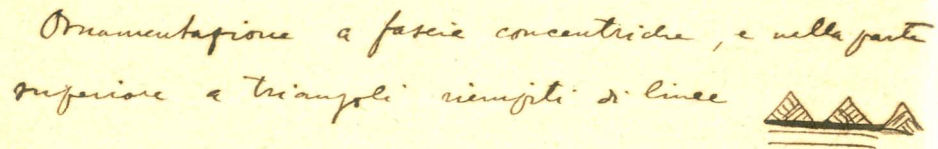 Ornamentazione a fascie concentriche, e nella parte
superiore a triangoli riempiti di linee